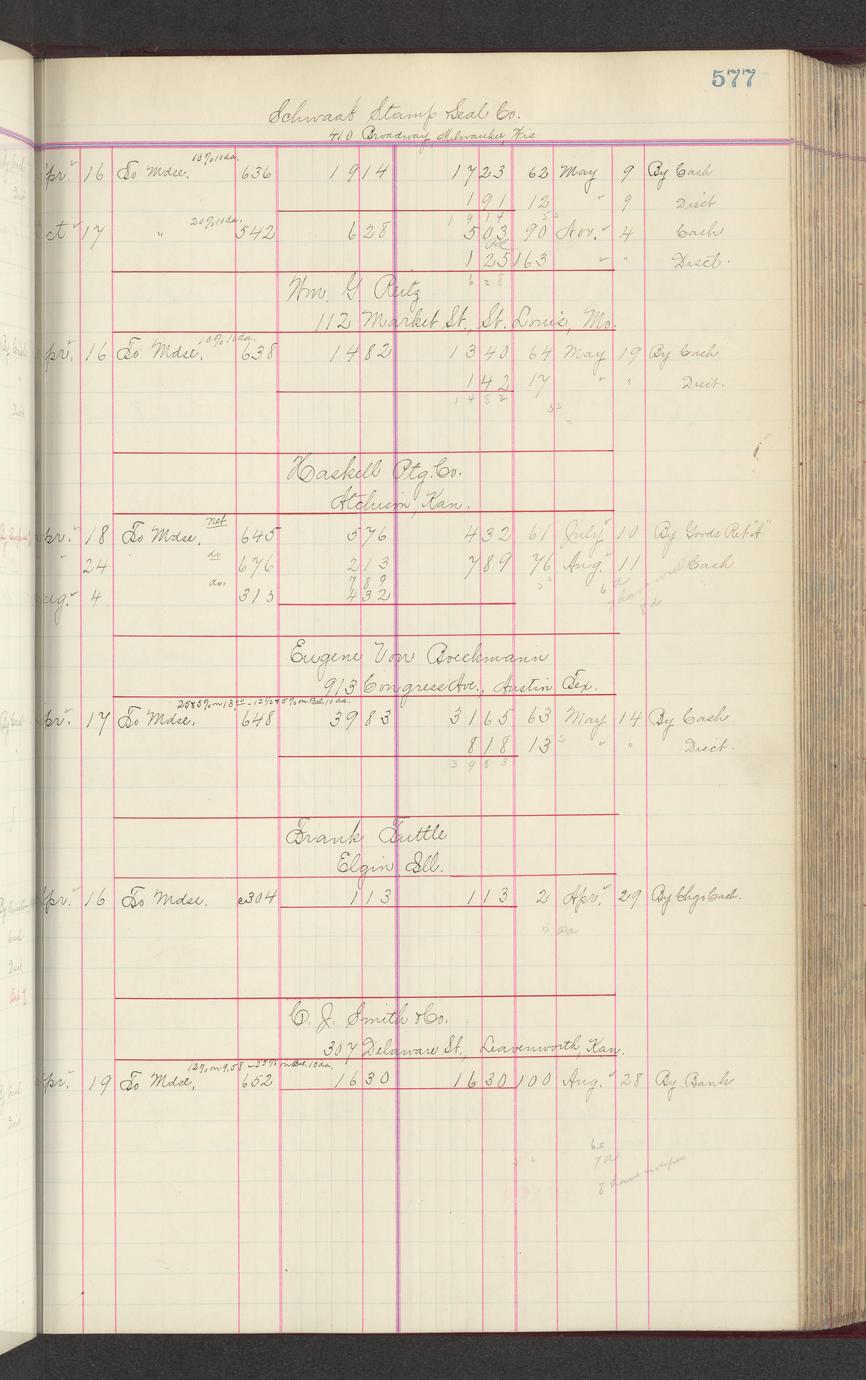 577
Schwaab Stamp & Seal Co.
410 Broadway, Milwaukee, Wis
pr. 16 To Mdse. 10% 10 da. 636 1914 1723 62 May 9 By Cash
191 12 " 9 Disct
1914
ct 17 " 20% 10 da. 542 628 503 90 Nov. 4 Cash
125 163 " " Disct.
628
Wm. G Reitz
112 Market St., St. Louis, Mo.
pr. 16 To Mdse. 10% 10 da. 638 1482 1340 64 May 19 By Cash
142 17 " " Disct.
1482
Haskell Ptg. Co.
Atchison, Kan.
pr. 18 To Mdse. net 645 576 432 61 July 10 By Goods Ret'd
" 24 do 676 213 789 76 Aug. 11 Cash
789
ug. 4 do. 313 432
Eugene Von Boeckmann
913 Congress Ave., Austin Tex.
pr. 17 To Mdse. 648 3983 3165 63 May 14 By Cash
818 13 " " Disct.
3983
Frank Tuttle
Elgin Ill.
pr. 16 To Mdse. e304 113 113 2 Apr. 29 By Chgs Cash.
C. J. Smith & Co.
307 Delaware St., Leavenworth, Kan.
pr. 19 To Mdse. 652 1630 1630 100 Aug. 28 By Bank